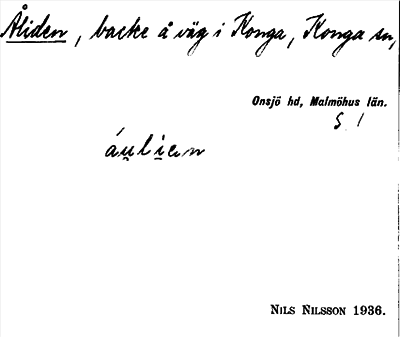 Åliden, backe å väg i Konga, Konga sn,
Onsjö hd, Malmöhus län.
S. 1
áu̯li̯ɛn
NILS NILSSON 1936.